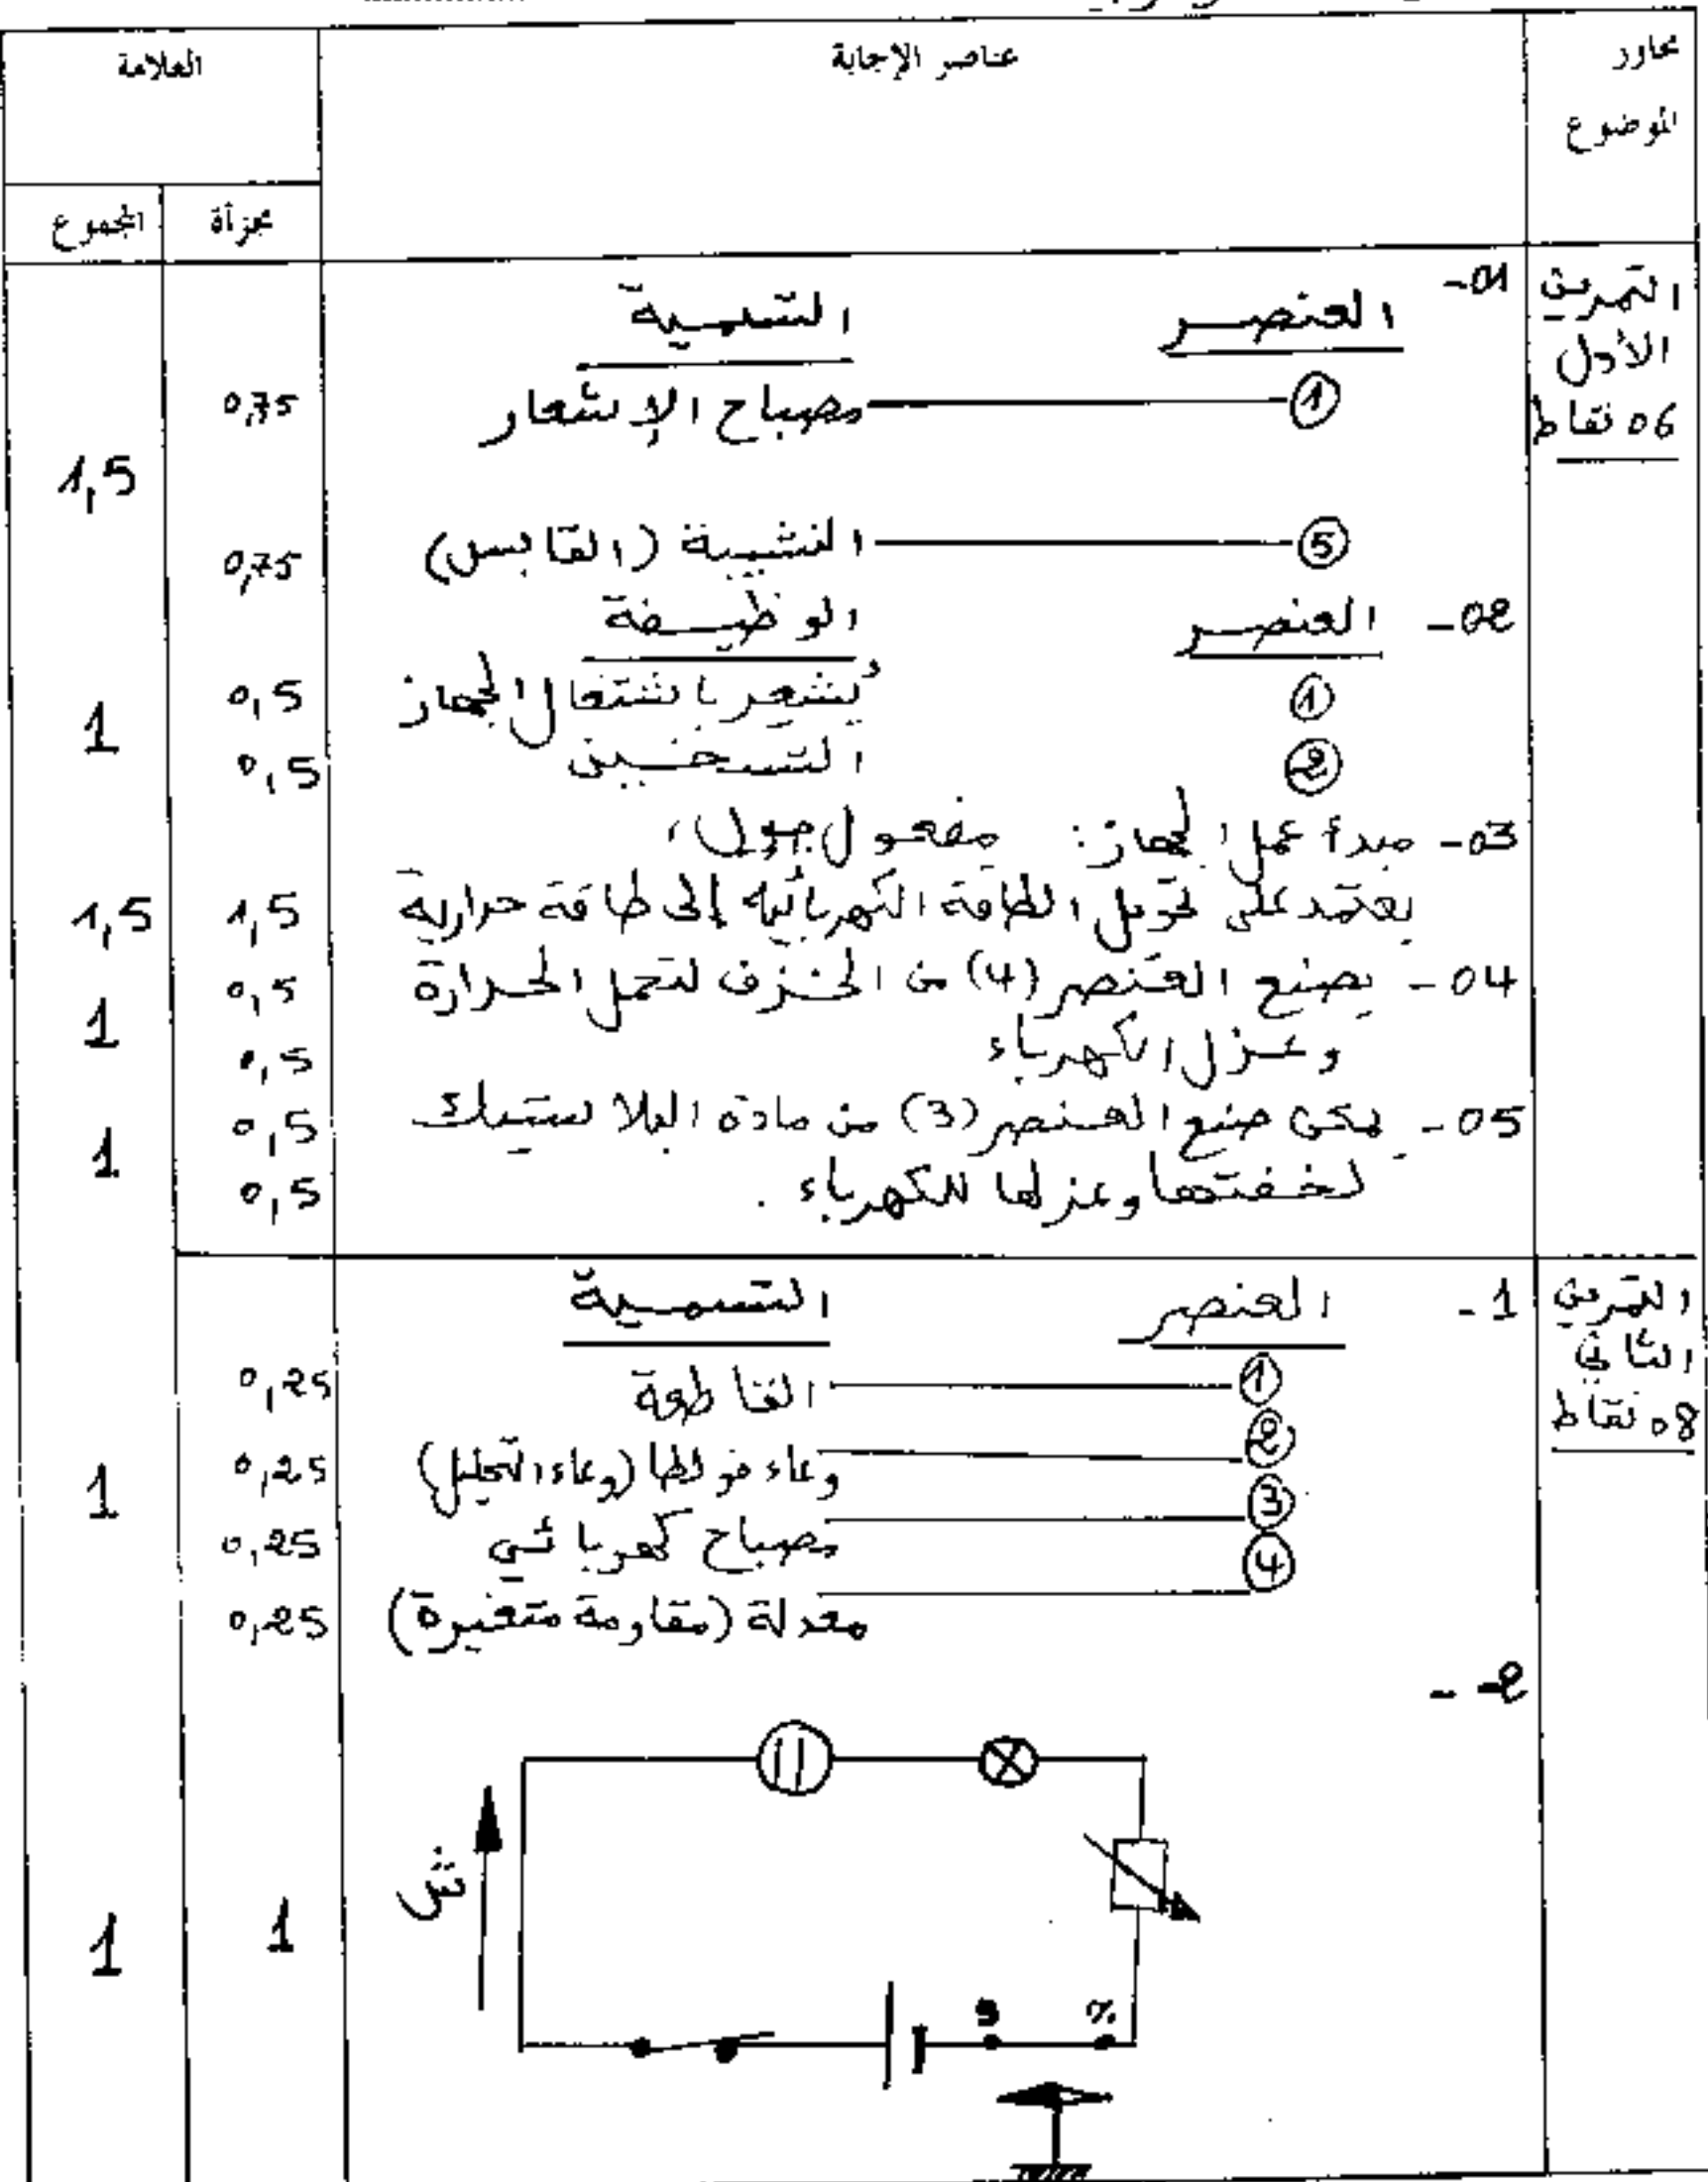 محاور الموضوع
عناصر الإجابة
العلامة
مجزأة
المجموع
التمرين الأول
06 نقاط
01-
العنصر التسمية
① مصباح الإشعار 0,75
1,5
⑤ النشيبة (القابس) 0,75
02- العنصر الوظيفة
① يُشعر باشتغال الجهاز 0,5
1
② التسخين 0,5
03- مبدأ عمل الجهاز: مفعول جول،
يعتمد على تحويل الطاقة الكهربائية إلى طاقة حرارية 1,5 1,5
04- يصنع العنصر (4) من الخزف لتحمل الحرارة 0,5
1
وعزل الكهرباء 0,5
05- يمكن صنع العنصر (3) من مادة البلاستيك 0,5
1
لخفتها وعزلها للكهرباء. 0,5
التمرين الثاني
08 نقاط
1- العنصر التسمية
① القاطعة 0,25
② وعاء فولطا (وعاء التحليل) 0,25
1
③ مصباح كهربائي 0,25
④ معدلة (مقاومة متغيرة) 0,25
2-
ش
1 1